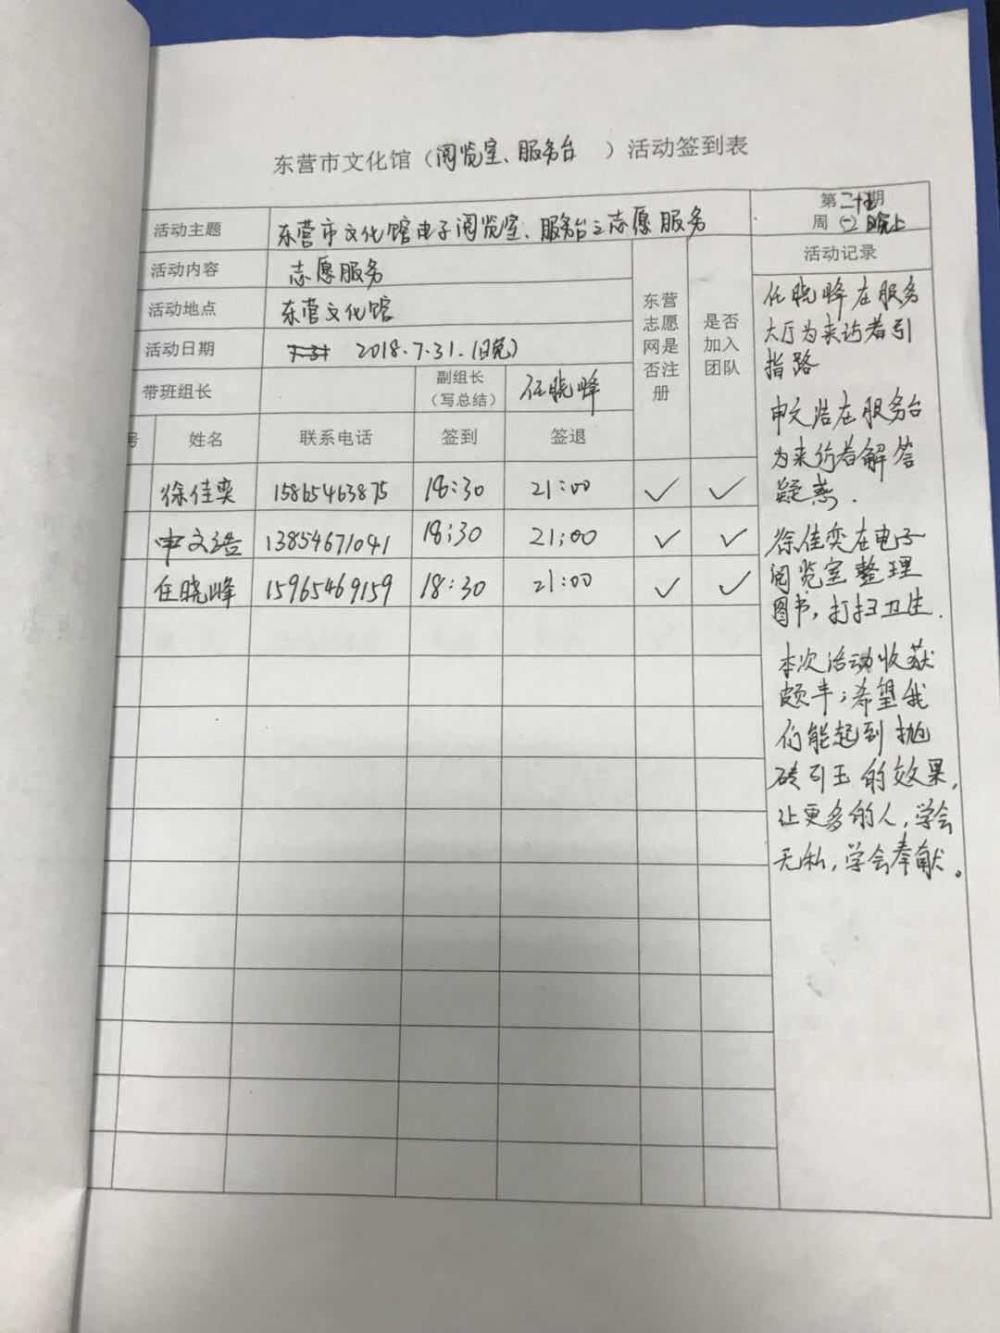 东营市文化馆（阅览室、服务台　）活动签到表
活动主题 东营市文化馆电子阅览室、服务台之志愿服务
第二十 期
周（二）晚上
活动内容 志愿服务
活动地点 东营文化馆
活动日期 2018.7.31.(晚)
带班组长
副组长
（写总结）
任晓峰
东营
志愿
网是
否注
册
是否
加入
团队
号 姓名 联系电话 签到 签退
徐佳奕 15865463875 18:30 21:00 ✓ ✓
申文浩 13854671041 18:30 21:00 ✓ ✓
任晓峰 15965469159 18:30 21:00 ✓ ✓
活动记录
任晓峰在服务
大厅为来访者引
指路
申文浩在服务台
为来访者解答
疑惑.
徐佳奕在电子
阅览室整理
图书,打扫卫生.
本次活动收获
颇丰;希望我
们能起到抛
砖引玉的效果,
让更多的人,学会
无私,学会奉献。